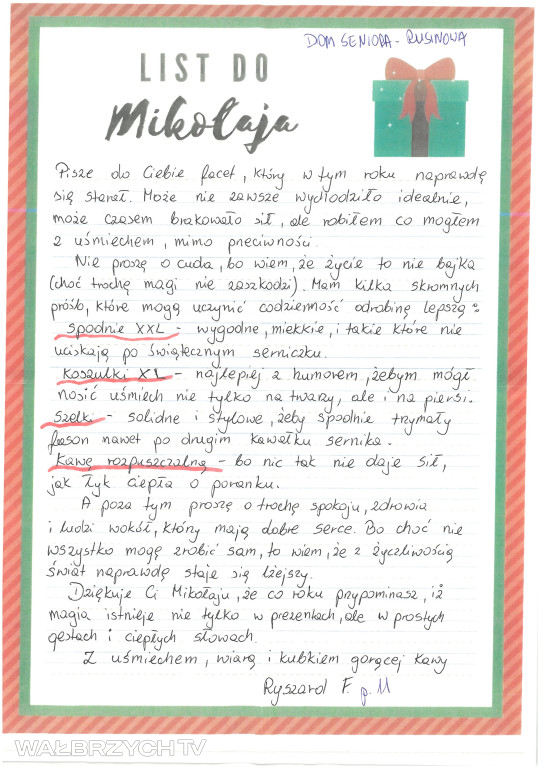 DOM SENIORA - RUSINOWA
LIST DO
Mikołaja
Pisze do Ciebie facet, który w tym roku naprawdę
się starał. Może nie zawsze wychodziło idealnie,
może czasem brakowało sił, ale robiłem co mogłem
z uśmiechem, mimo przeciwności.
Nie proszę o cuda, bo wiem, że życie to nie bajka
(choć trochę magi nie zaszkodzi). Mam kilka skromnych
próśb, które mogą uczynić codzienność odrobinę lepszą:
Spodnie XXL - wygodne, miękkie, i takie które nie
uciskają po świątecznym serniczku.
Koszulki XL - najlepiej z humorem, żebym mógł
nosić uśmiech nie tylko na twarzy, ale i na piersi.
Szelki - solidne i stylowe, żeby spodnie trzymały
fason nawet po drugim kawałku sernika.
Kawę rozpuszczalną - bo nic tak nie daje sił,
jak łyk ciepła o poranku.
A poza tym proszę o trochę spokoju, zdrowia
i ludzi wokół, który mają dobre serce. Bo choć nie
wszystko mogę zrobić sam, to wiem, że z życzliwością
świat naprawdę staje się lżejszy.
Dziękuje Ci Mikołaju, że co roku przypominasz, iż
magia istnieje nie tylko w prezentach, ale w prostych
gestach i ciepłych słowach.
Z uśmiechem, wiarą i kubkiem gorącej kawy
Ryszard F. p. 11
WAŁBRZYCH TV